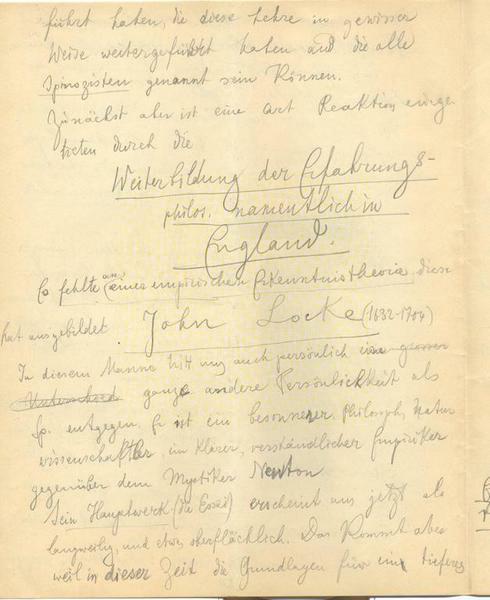 führt haben, die diese Lehre in gewisser
Weise weitergeführt haben und die alle
Spinozisten genannt sein können.
Zunächst aber ist eine Art Reaktion einge
treten durch die
Weiterbildung der Erfahrungs-
philos. namentlich in
England.
Es fehlte (an) einer empirischen Erkenntnistheorie, diese
hat ausgebildet John Locke (1632-1704)
In diesem Manne tritt uns auch persönlich eine
Unterschied ganz andere Persönlichkeit als
Sp. entgegen. Er ist ein besonnener Philosoph, Natur
wissenschaftler, ein klarer, verständlicher Empiriker
gegenüber dem Mystiker Newton
Sein Hauptwerk (die Essai) erscheint uns jetzt als
langweilig, und etwas oberflächlich. Das kommt aber
weil in dieser Zeit die Grundlagen für ein tieferes